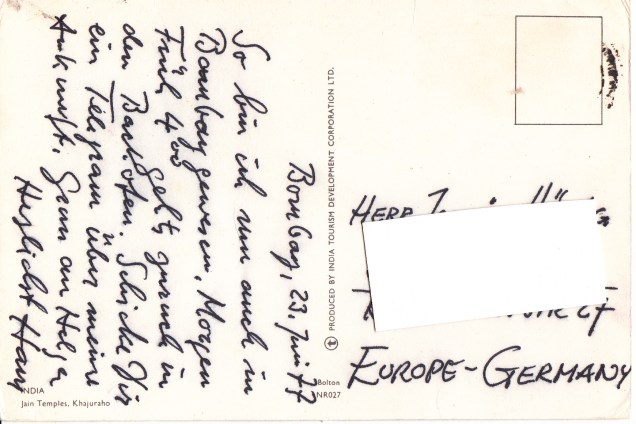 Bombay, 23. Juni 77
So bin ich nun auch in
Bombay gewesen, Morgen
Früh 4⁰⁰ geht's zurück in
den Backofen. Schicke Dir
ein Telegram über meine
Ankunft. Gruss an Helga
Herzlichst Hans
INDIA
Jain Temples, Khajuraho
PRODUCED BY INDIA TOURISM DEVELOPMENT CORPORATION LTD.
Bolton
NR027
HERR
EUROPE-GERMANY